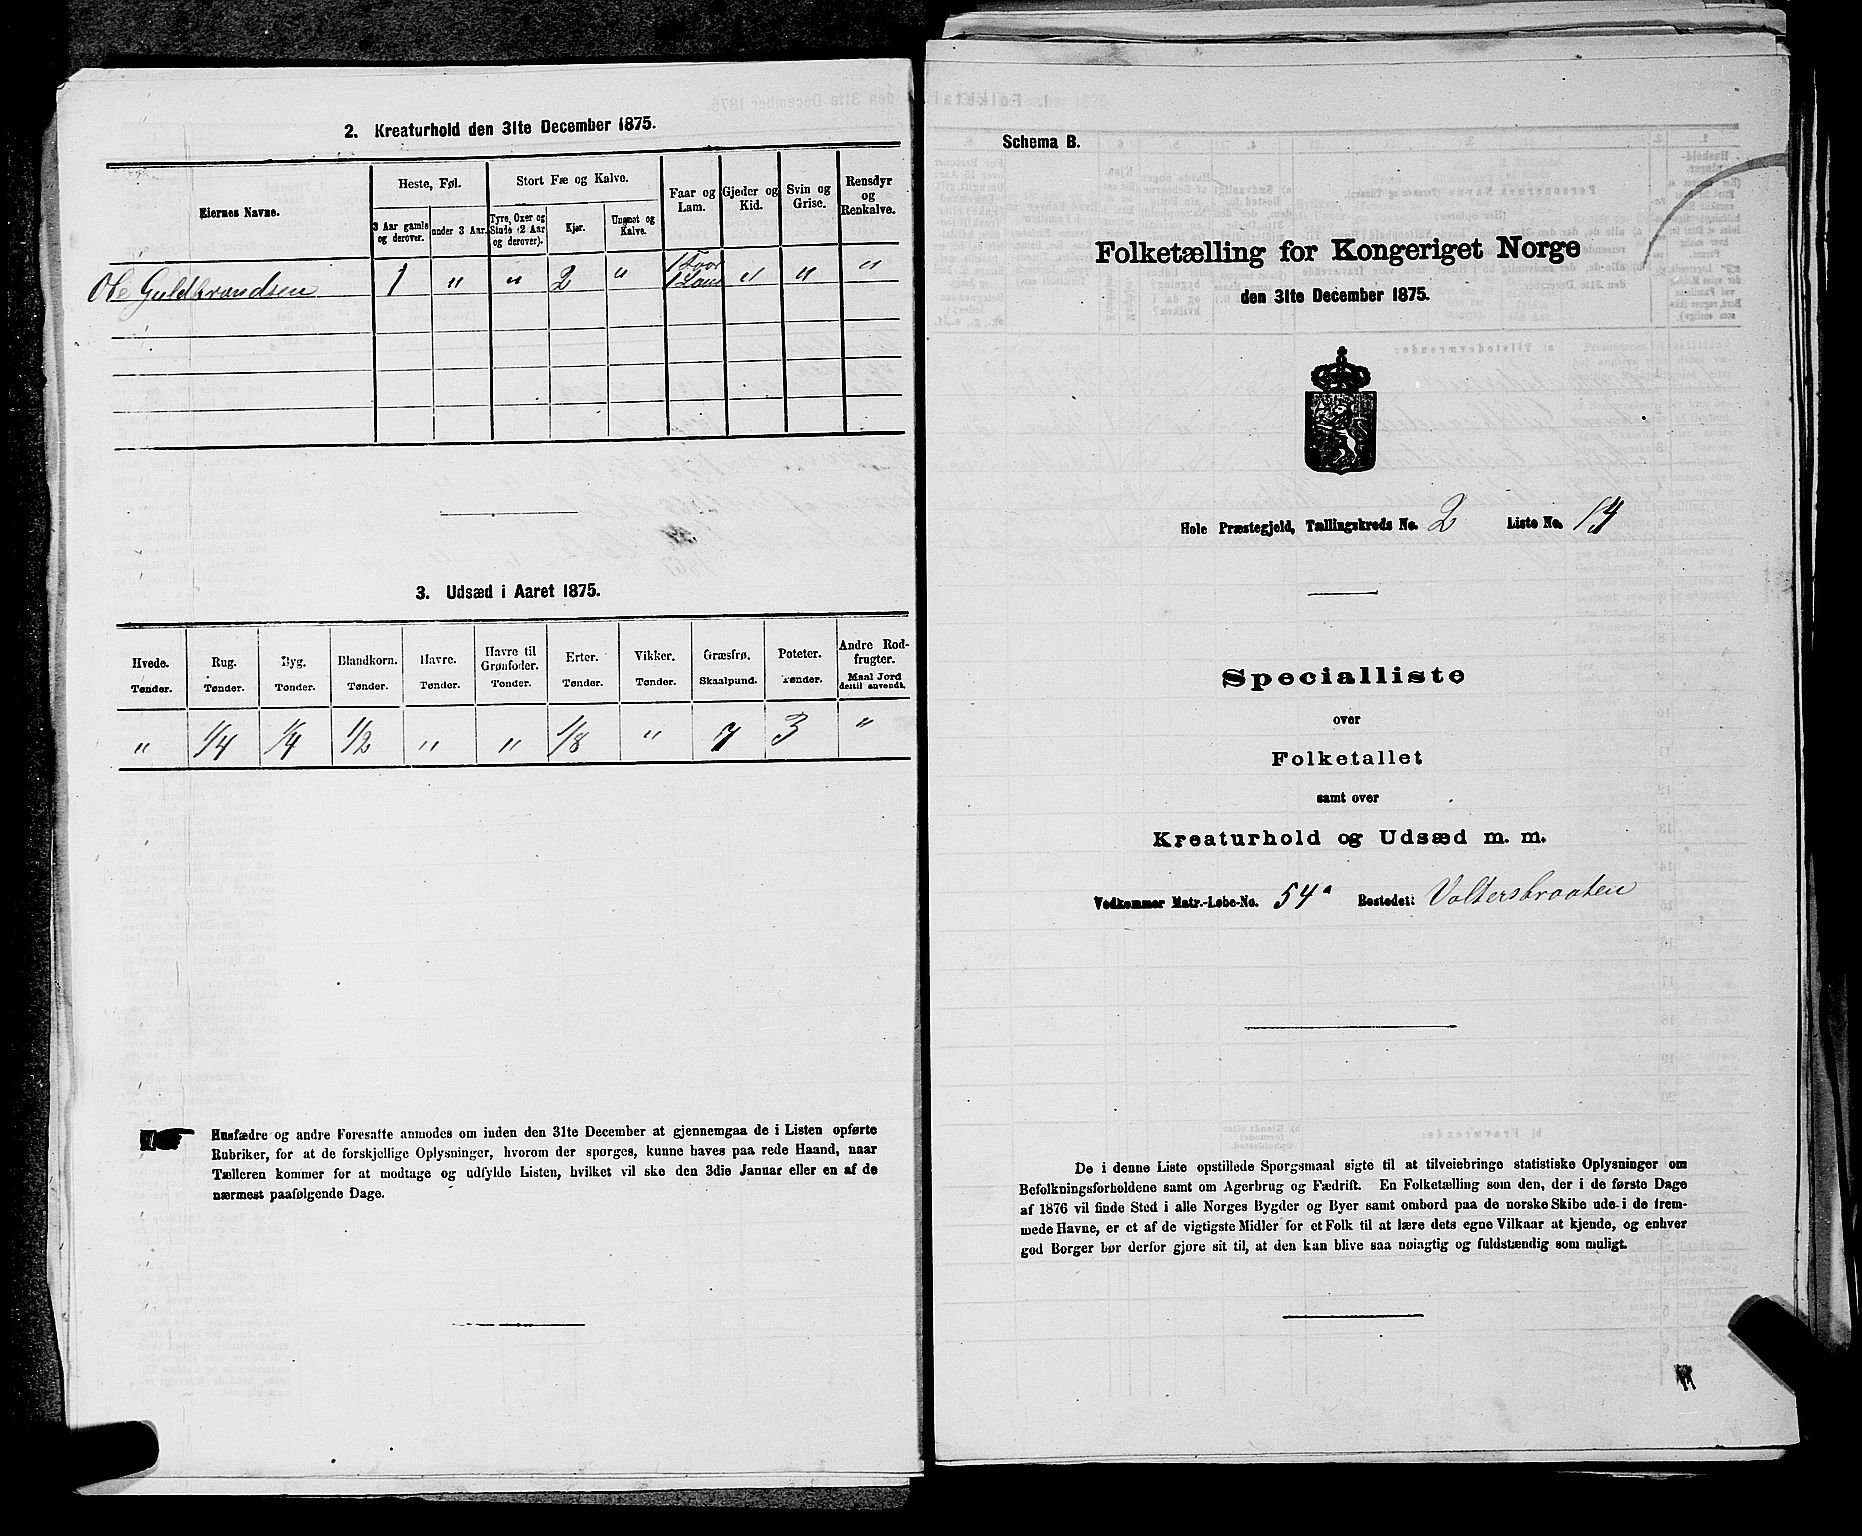 2. Kreaturhold den 31te December 1875.
Eiernes Navne.
Heste, Føl.
Stort Fæ og Kalve.
Faar og Lam.
Gjeder og Kid.
Svin og Grise.
Rensdyr og Renkalve.
3 Aar gamle og derover.
under 3 Aar.
Tyre, Oxer og Stude (2 Aar og derover).
Kjør.
Ungnøt og Kalve.
Ole Guldbrandsen 1 " " 2 " 1 Faar 1 Lam " " "
3. Udsæd i Aaret 1875.
Hvede. Rug. Byg. Blandkorn. Havre. Havre til Grønfoder. Erter. Vikker. Græsfrø. Poteter. Andre Rodfrugter.
Tønder. Tønder. Tønder. Tønder. Tønder. Tønder. Tønder. Tønder. Skaalpund. Tønder. Maal Jord dertil anvendt.
" 1/4 1/4 1/2 " " 1/8 " 7 3 "
Husfædre og andre Foresatte anmodes om inden den 31te December at gjennemgaa de i Listen opførte
Rubriker, for at de forskjellige Oplysninger, hvorom der spørges, kunne haves paa rede Haand, naar
Tælleren kommer for at modtage og udfylde Listen, hvilket vil ske den 3die Januar eller en af de
nærmest paafølgende Dage.
Schema B.
Folketælling for Kongeriget Norge
den 31te December 1875.
Hole Præstegjeld, Tællingskreds No. 2 Liste No. 14
Specialliste
over
Folketallet
samt over
Kreaturhold og Udsæd m. m.
Vedkommer Matr.-Løbe-No. 54a Bostedet: Voltersbraaten
De i denne Liste opstillede Spørgsmaal sigte til at tilveiebringe statistiske Oplysninger om
Befolkningsforholdene samt om Agerbrug og Fædrift. En Folketælling som den, der i de første Dage
af 1876 vil finde Sted i alle Norges Bygder og Byer samt ombord paa de norske Skibe ude i de frem-
mede Havne, er et af de vigtigste Midler for et Folk til at lære dets egne Vilkaar at kjende, og enhver
god Borger bør derfor gjøre sit til, at den kan blive saa nøiagtig og fuldstændig som muligt.